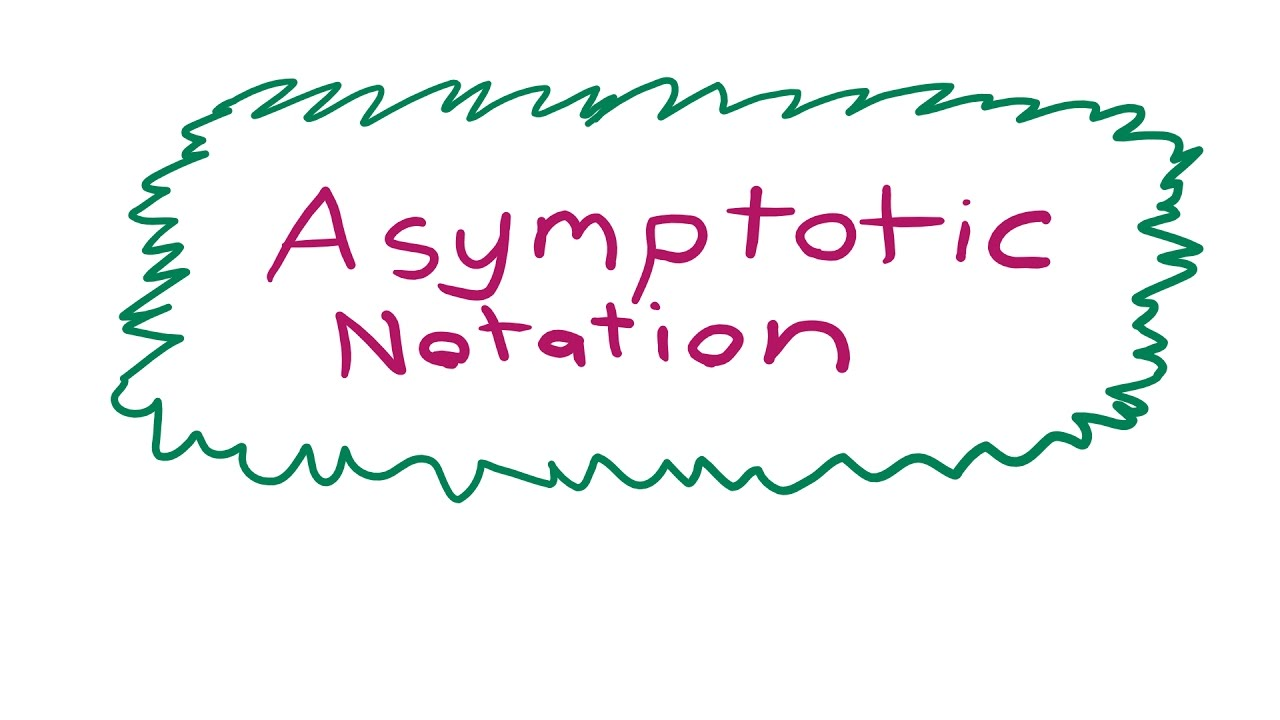 Asymptotic
Notation